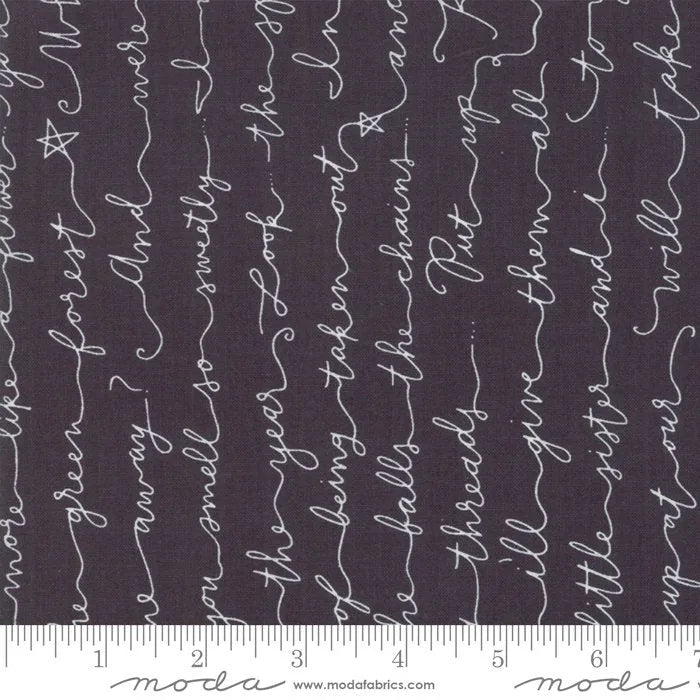 more like a flower
green forest
away? And were
you smell so sweetly... I
the year Look... the
of being taken out In
falls the chains... and
threads ... Put up
i'll give them all
little sister and i... to
up at our will take
1 2 3 4 5 6 7
moda www.modafabrics.com moda